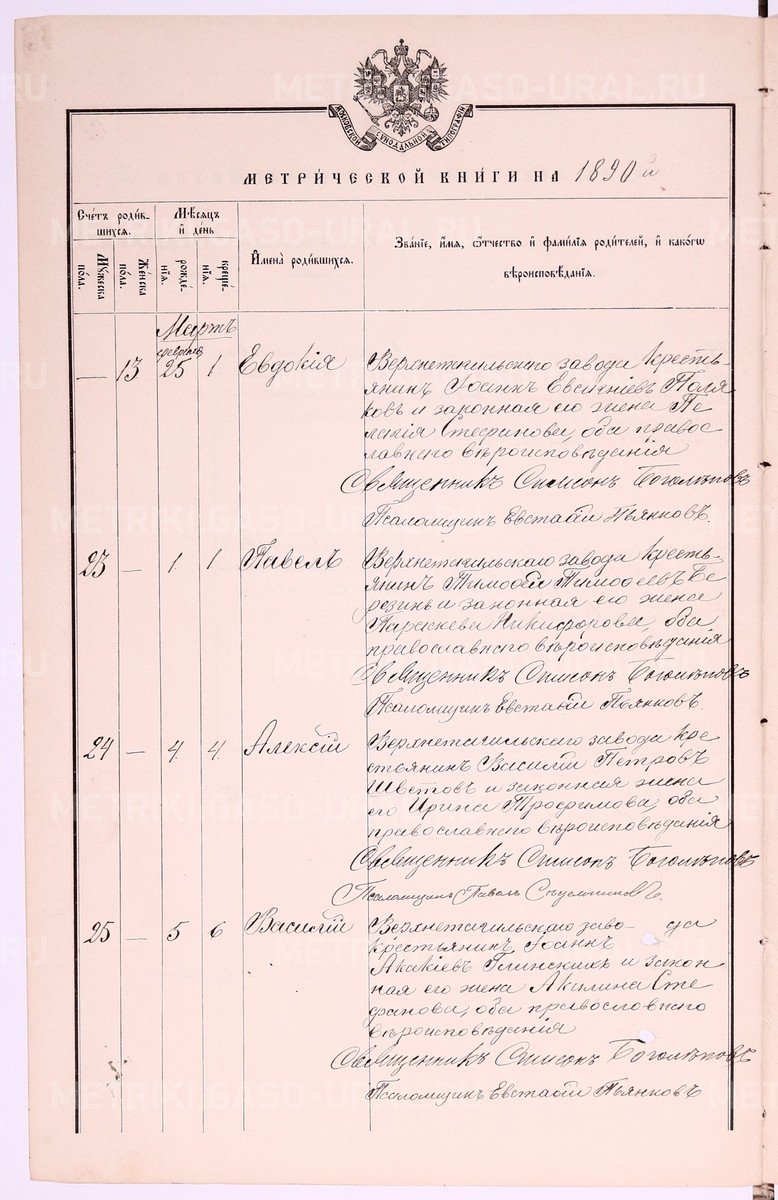 МОСКОВСКОЙ СѴНОДАЛЬНОЙ ТИПОГРАФІИ
МЕТРИ́ЧЕСКОЙ КНИ́ГИ НА 1890 й
Сче́тъ роди́в-
шихся.
Мѣ́сяцъ
и҆ де́нь
Мꙋ́жеска
по́ла.
Же́нска
по́ла.
рожде́-
нїѧ.
креще́-
нїѧ.
И҆мена̀ роди́вшихся.
Зва́нїе, и҆́мя, ѻ҆́тчество и҆ фами́лїя роди́телей, и҆ како́гѡ
вѣроисповѣ́данїя.
Мартъ
февраль
— 13 25 1 Евдокія
Верхнетагильскаго завода кресть-
янинъ Іоаннъ Евсигніевъ Поля
ковъ и законная его жена Пе
лагія Стефанова, оба правос
лавнаго вѣроисповѣданія
Священникъ Симеонъ Боголѣповъ
Псаломщикъ Евстафій Пьянковъ.
23 — 1 1 Павелъ
Верхнетагильскаго завода кресть-
янинъ Тимофей Тимофеевъ Бе
резинъ и законная его жена
Параскева Никифорова, оба
православнаго вѣроисповѣданія
Священникъ Симеонъ Боголѣповъ
Псаломщикъ Евстафій Пьянковъ.
24 — 4 4 Алексій
Верхнетагильскаго завода кре
стьянинъ Василій Петровъ
Швѣтовъ и законная жена
его Ирина Трофимова, оба
православнаго вѣроисповѣданія
Священникъ Симеонъ Боголѣповъ
Псаломщикъ Павелъ
25 — 5 6 Василій
Верхнетагильскаго заво- да
крестьянинъ Іоаннъ
Акакіевъ Глинскихъ и закон
ная его жена Акилина Сте
фанова, оба православнаго
вѣроисповѣданія
Священникъ Симеонъ Боголѣповъ
Псаломщикъ Евстафій Пьянковъ
METRIKI.GASO-URAL.RU